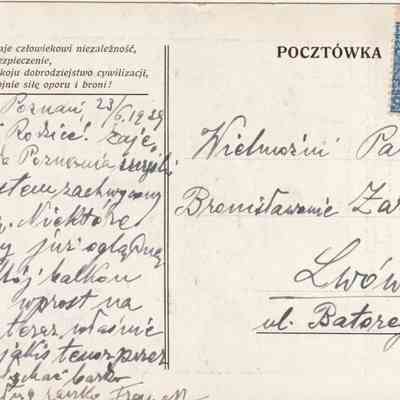 aje człowiekowi niezależność,
zpieczenie,
koju dobrodziejstwo cywilizacji,
ojnie siłę oporu i broni!
POCZTÓWKA
Poznań, 23/6.1929
Rodzice!
Poznania
stem zachwycony
Niektóre
już oglądną
balkon
wprost na
teraz właśnie
jakiś
Wielmożni Pa
Bronisławowie Zar
Lwów
ul. Batore